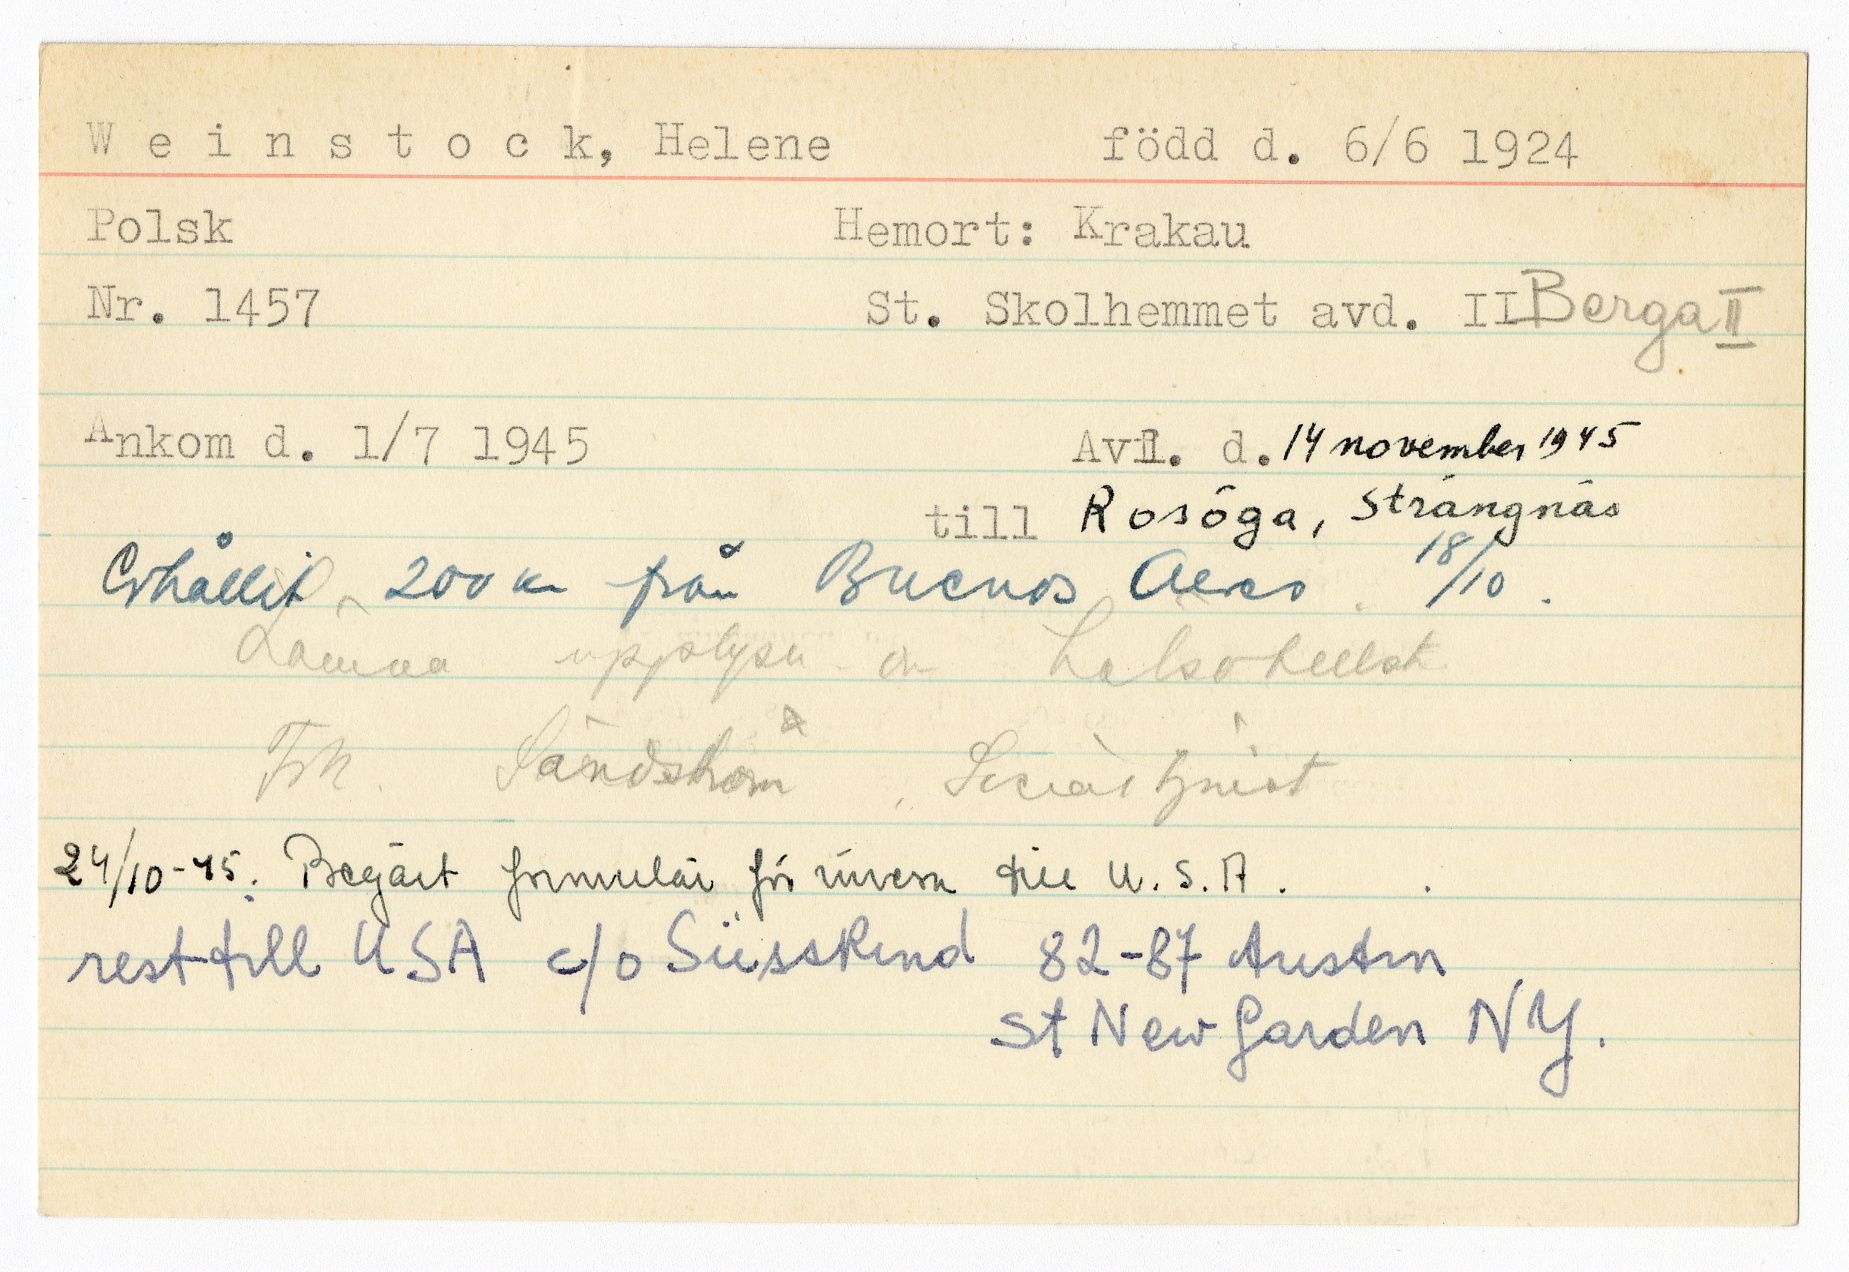 Weinstock, Helene född d. 6/6 1924
Polsk Hemort: Krakau
Nr. 1457 St. Skolhemmet avd. II Berga II
Ankom d. 1/7 1945 Avfl. d. 14 november 1945
till Rosöga, Strängnäs
Erhållit 200 kr från Buenos Aeres 18/10.
Lämna upplysn om
Frk. Sandström,
24/10-45. Begärt formulär för inresa till U.S.A.
rest till USA c/o Süsskind 82-87 Austin
St New Garden NY.